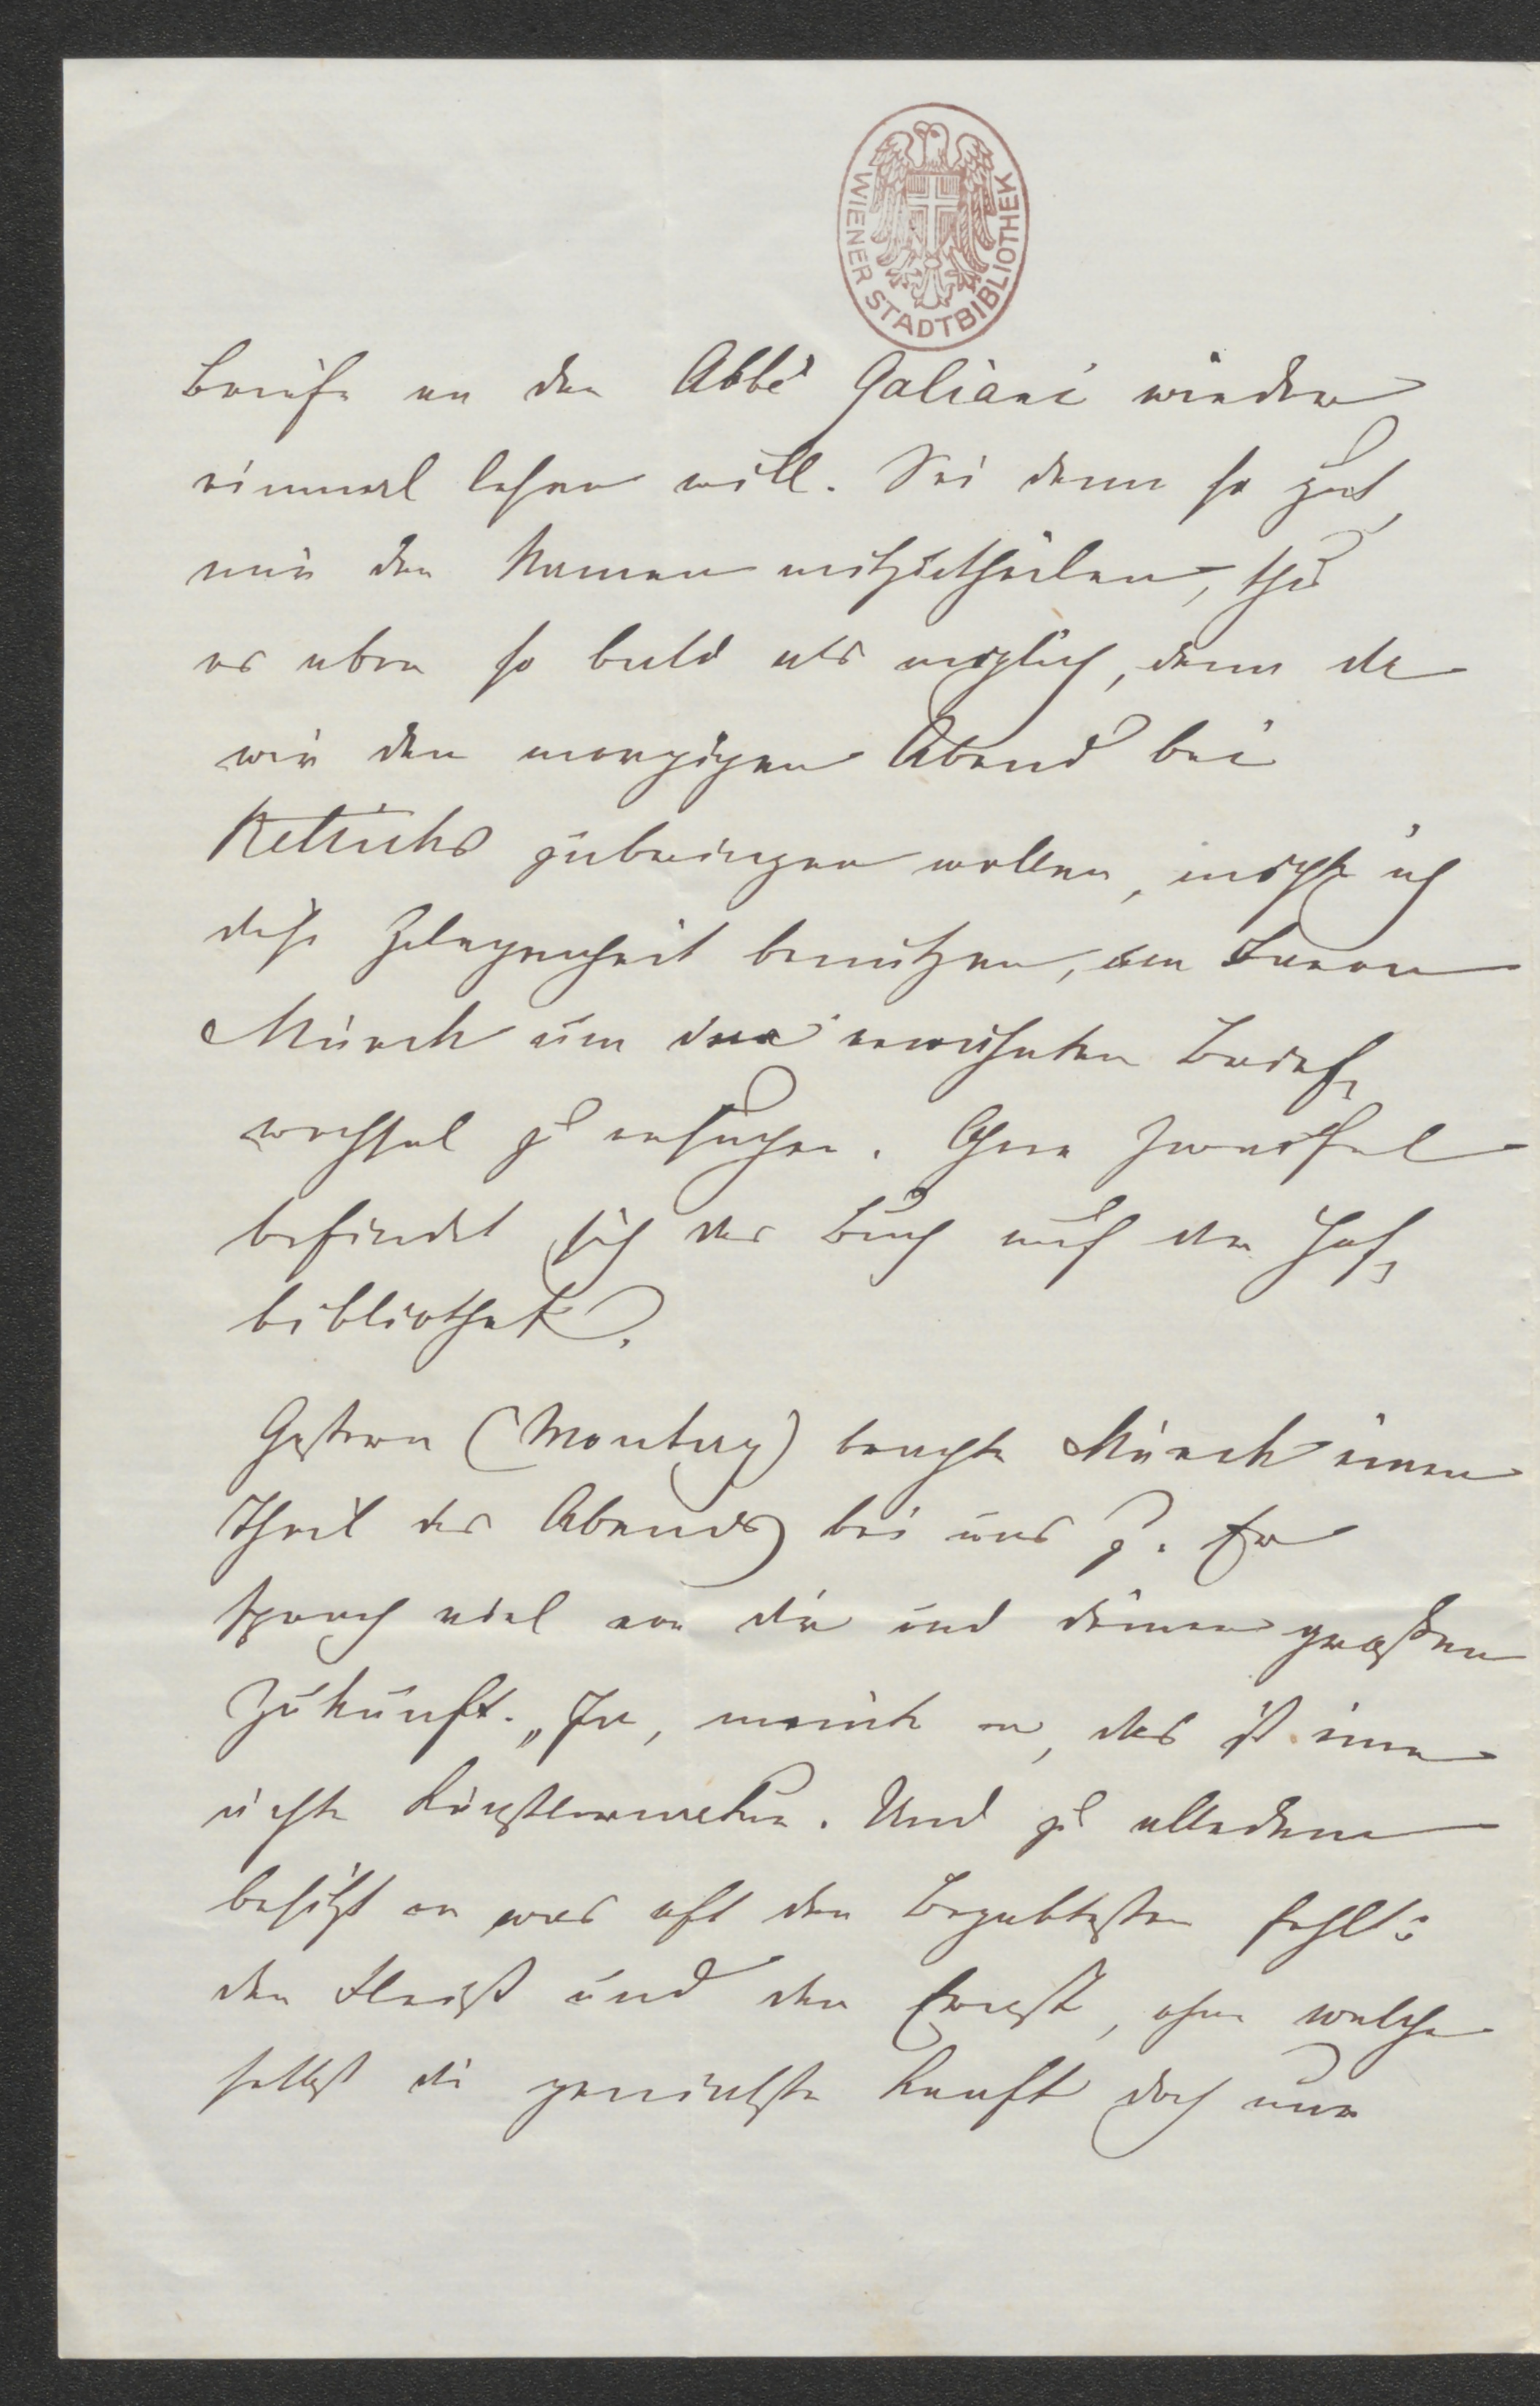 WIENER STADTBIBLIOTHEK
Briefe an den Abbé Galiani wieder
einmal lesen will. Sei denn so gut,
mir den Namen mitzutheilen, thu
es aber so bald als möglich, denn da
wir den morgigen Abend bei
Rettichs zubringen wollen, möchte ich
diese Gelegenheit benützen, um Baron
Münch um den erwähnten Brief-
wechsel zu ersuchen. Ohne Zweifel
befindet sich das Buch auf der Hof-
bibliothek.
Gestern (Montag) brachte Münch einen
Theil des Abends bei uns z. Er
sprach viel von dir und deiner großen
Zukunft. „Ja, meinte er, das ist eine
ächte Künstlernatur. Und zu alledem
besitzt er was oft den Begabtesten fehlt:
den Fleiß und den Ernst, ohne welche
selbst die genialste Kraft doch nur